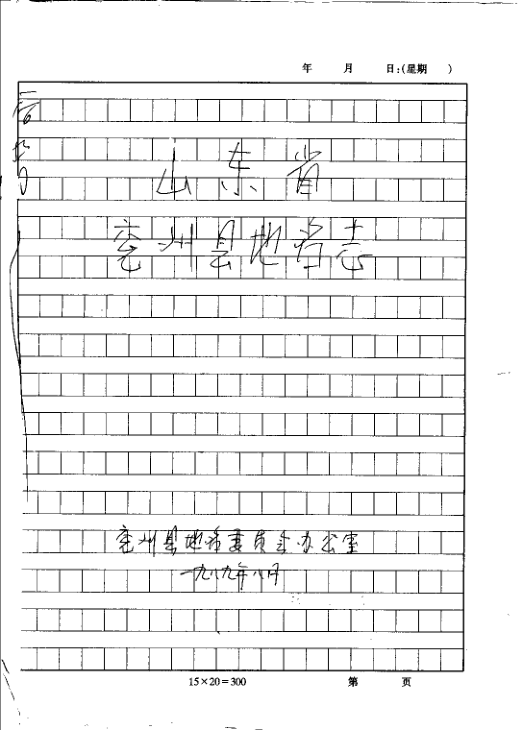 年 月 日:(星期 )
山东省
兖州县地名志
兖州县地名委员会办公室
一九八九年八月
15×20=300 第 页